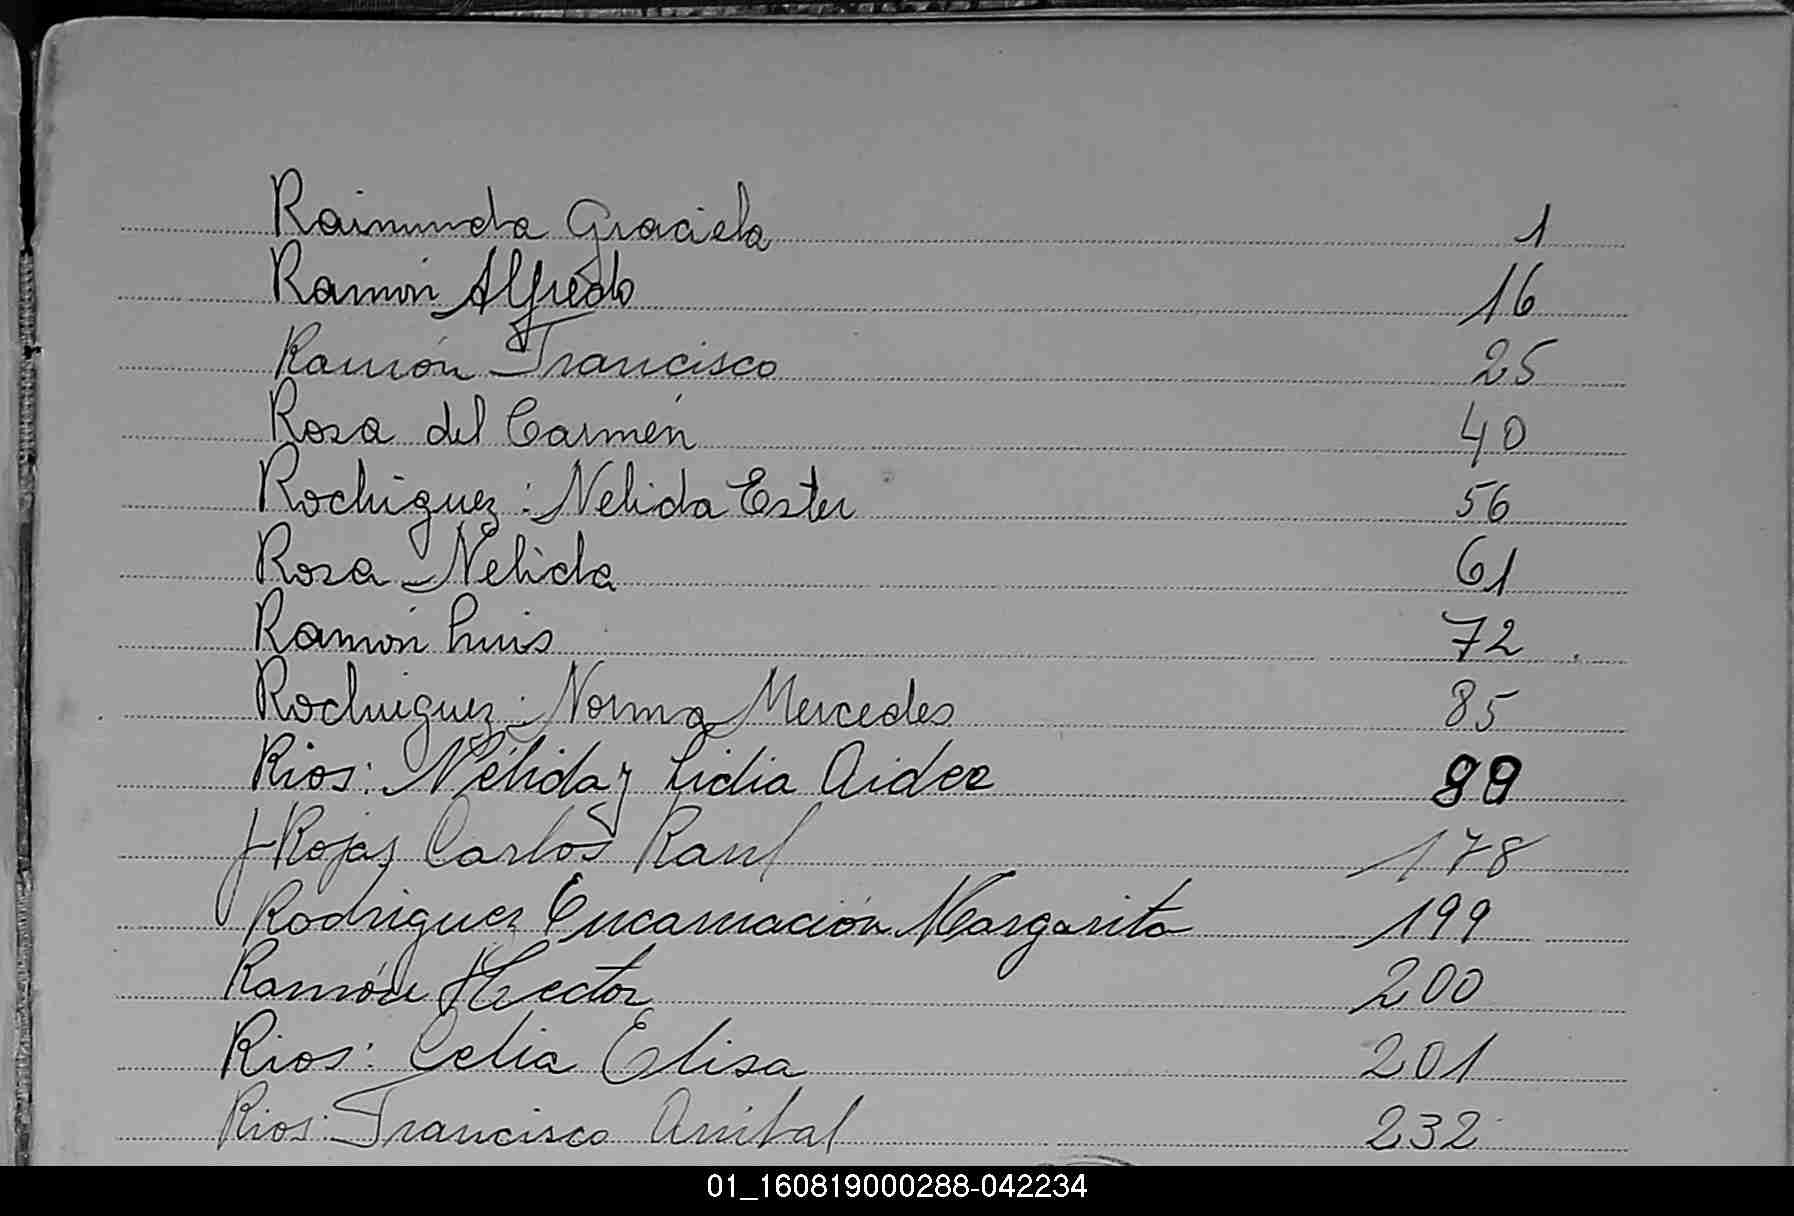 Raimunda Graciela 1
Ramón Alfredo 16
Ramón Francisco 25
Rosa del Carmén 40
Rodriguez: Nelida Ester 56
Rosa Nelida 61
Ramón Luis 72
Rodriguez: Norma Mercedes 85
Rios: Nélida y Lidia Aidee 89
Rojas Carlos Raul 178
Rodriguez Encarnación Margarita 199
Ramón Hector 200
Rios: Celia Elisa 201
Rios: Francisco Anibal 232
01_160819000288-042234